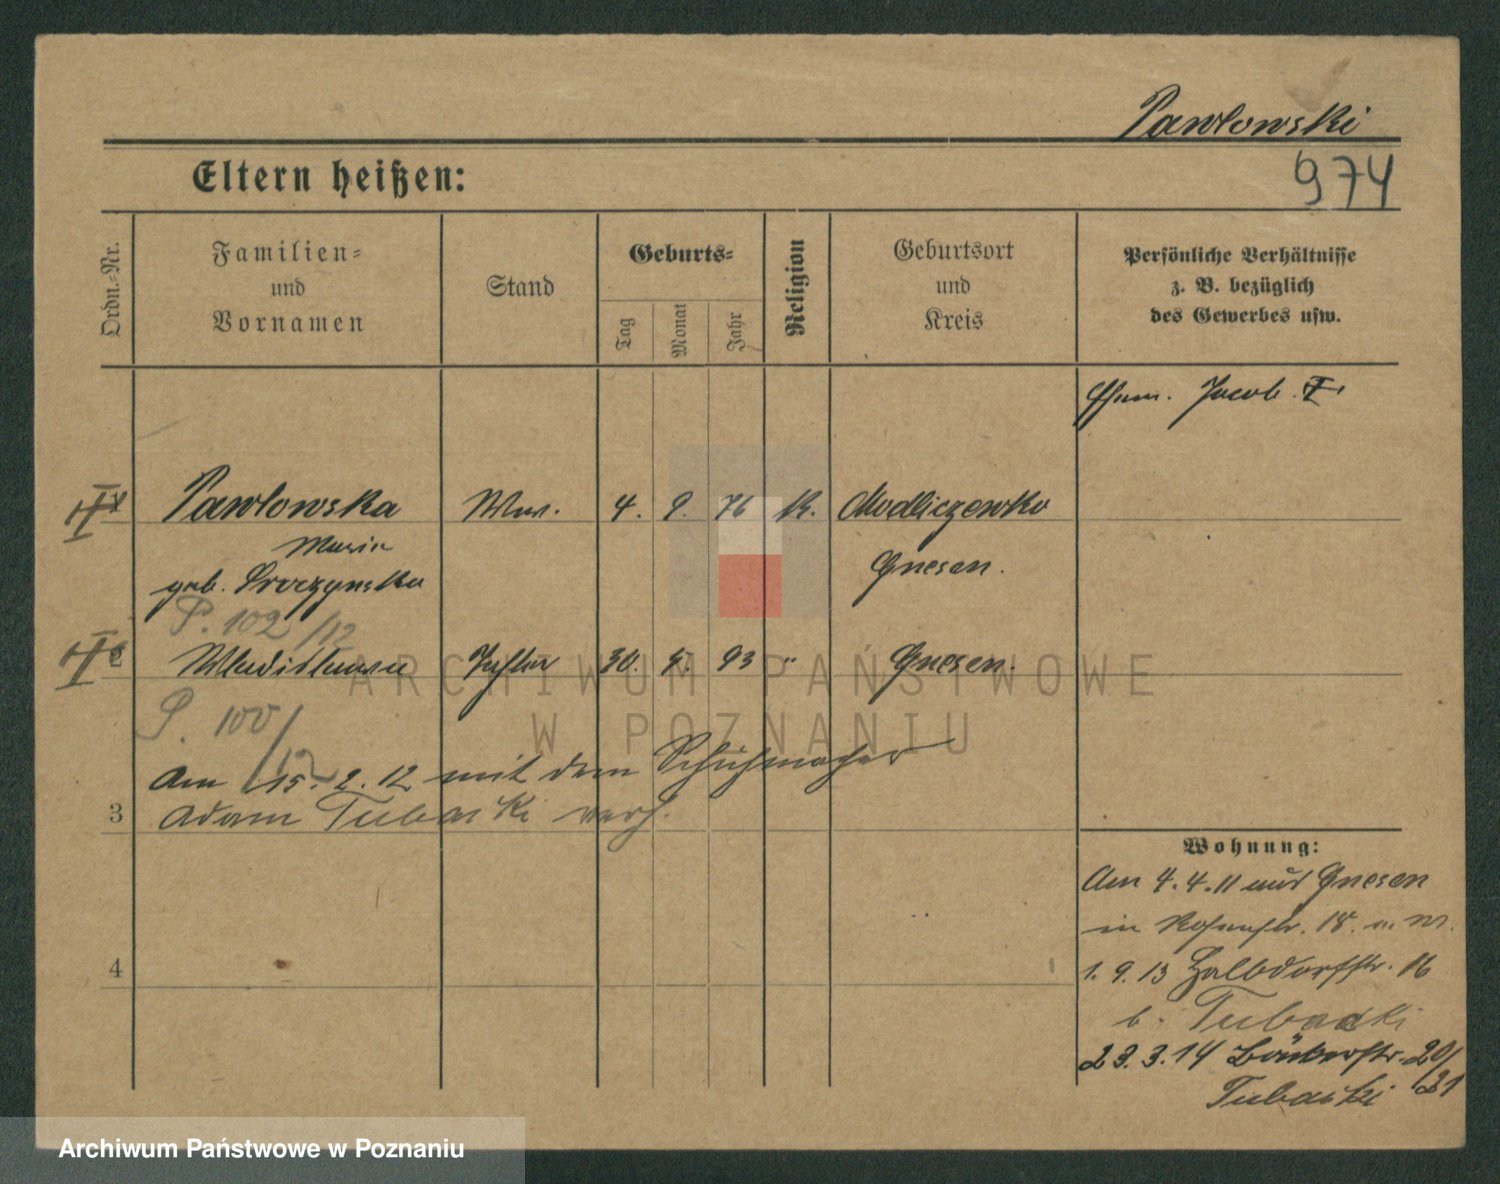 Pawlowski
974
Eltern heißen:
Ordn.-Nr.
Familien- und Vornamen
Stand
Geburts-
Tag
Monat
Jahr
Religion
Geburtsort und Kreis
Persönliche Verhältnisse
z. B. bezüglich
des Gewerbes usw.
Ehem. Jacob
Pawlowska Ww. 4. 9. 76 K. Modliczewko
Maria
geb. Gnesen.
P. 102/12
2 Wladislawa Tochter 30. 5. 93 " Gnesen.
P. 100/12
Am 15.2.12 mit dem Schuhmacher
3 Adam Tubacki verh.
4
Wohnung:
Am 4.4.11 aus Gnesen
in 18.
1.9.13 Halbdorfstr. 16
b. Tubacki
23.3.14 Bäckerstr. 20/21
Tubacki
ARCHIWUM PAŃSTWOWE
W POZNANIU
Archiwum Państwowe w Poznaniu